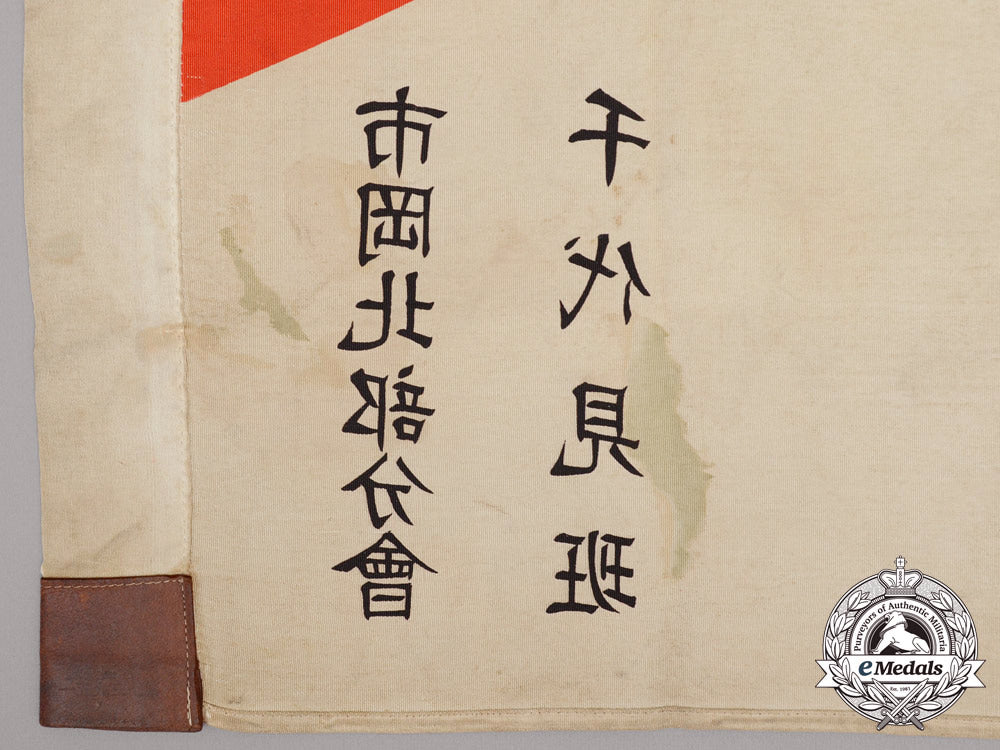 市岡北部分會
千代見班
Purveyors of Authentic Militaria
eMedals
Est. 1987